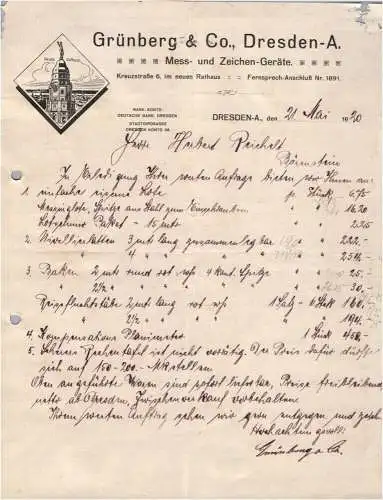 Grünberg & Co., Dresden-A.
Mess- und Zeichen-Geräte.
Kreuzstraße 6, im neuen Rathaus : : Fernsprech-Anschluß Nr. 1891.
BANK-KONTO:
DEUTSCHE BANK, DRESDEN
STADTGIROKASSE
DRESDEN KONTO
DRESDEN-A., den 21 Mai 1920
Herrn Herbert Reichelt
Bärenstein
In Erledigung Ihrer werten Anfrage bieten wir Ihnen an:
1 einfache eiserne Lote p. Stück 6.75
Messinglote, Spitze aus Stahl zum " " 16.20
Lotschnur Paket - 15 mtr " "
2. Nivellierlatten 3 mtr lang zusammenlegbar " " 222.-
" 4 " " " "
3 Baken 2 mtr rund rot w/s 4 kant. Spitze " " 25.-
" 2½ " " " " " " " 30.-
Reissfluchtstäbe 2 mtr lang rot w/s 1 Satz - 6 Stck 160.-
" 2½ " " " " " "
4. Kompensations Planimeter 1 Stück 450.-
5. ist nicht vorrätig. Der Preis dafür dürfte
sich auf 150-200.- Mk stellen
Oben angeführte Waren sind sofort lieferbar, Preise freibleibend
netto ab Dresden, Zwischenverkauf vorbehalten.
Ihrem werten Auftrag sehen wir gern entgegen und
Hochachtungsvoll
Grünberg & Co.